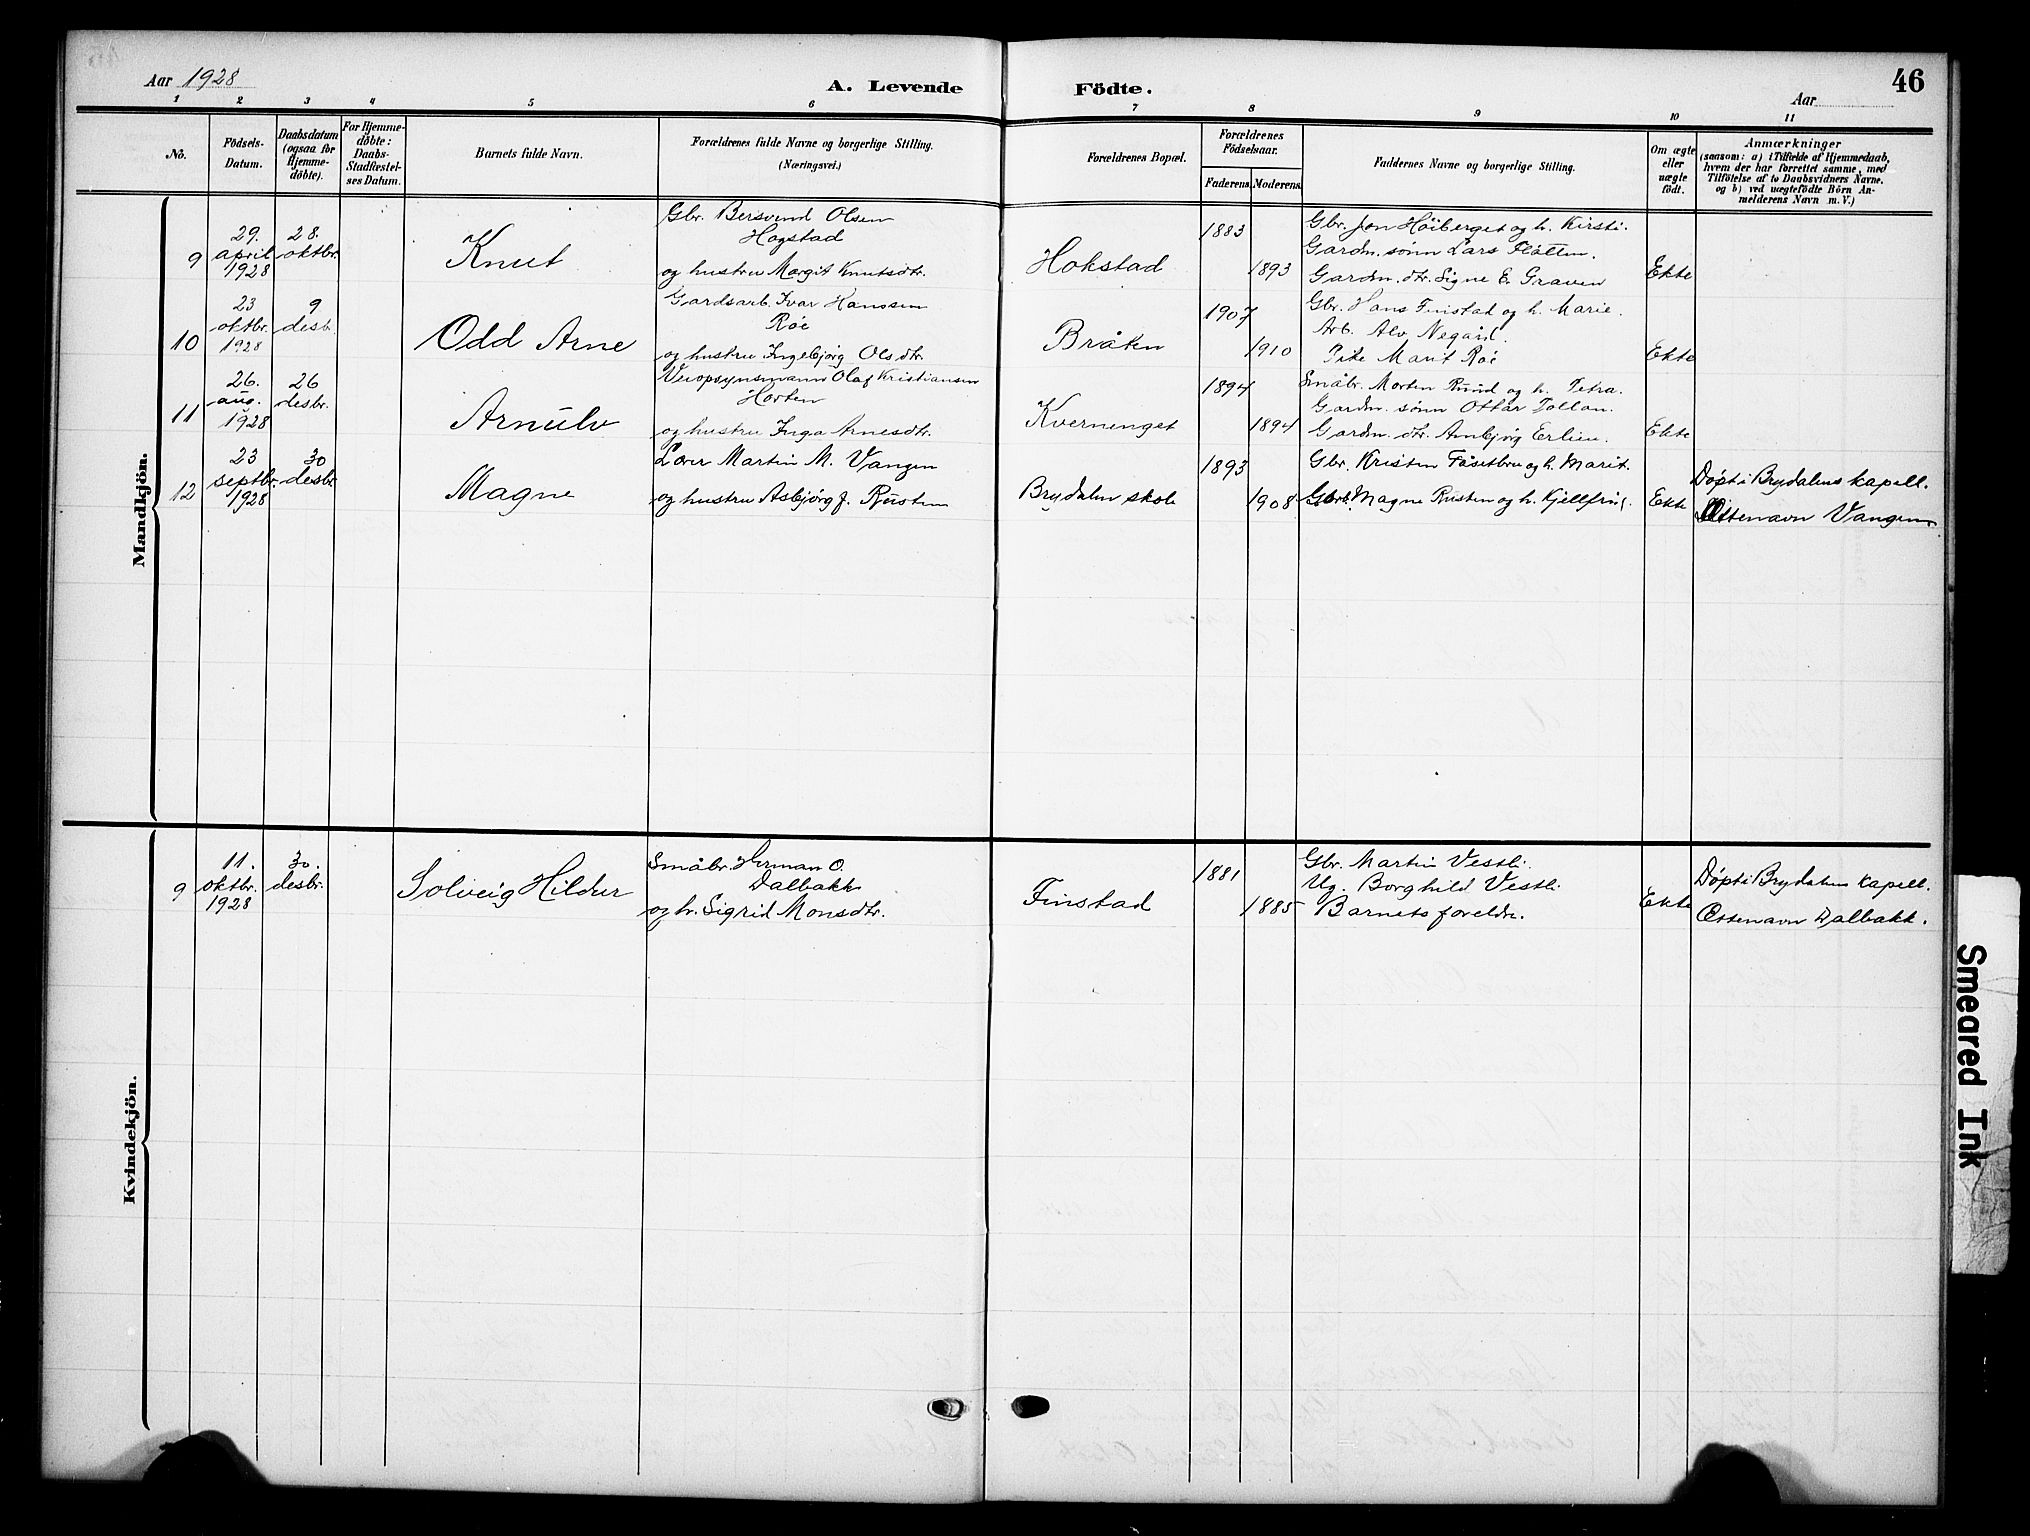 Aar 1928
A. Levende Födte.
46
Aar
1 2 3 4 5 6 7 8 9 10 11
No.
Födsels-
Datum.
Daabsdatum
(ogsaa for
Hjemme-
döbte).
For Hjemme-
döbte:
Daabs-
Stadfæstel-
ses Datum.
Barnets fulde Navn.
Forældrenes fulde Navne og borgerlige Stilling.
(Næringsvei.)
Forældrenes Bopæl.
Forældrenes
Födselsaar.
Faderens. Moderens.
Faddernes Navne og borgerlige Stilling.
Om ægte
eller
uægte
födt.
Anmærkninger
(saasom: a) i Tilfælde af Hjemmedaab,
hvem der har forrettet samme, med
Tilföielse af to Daabsvidners Navne,
og b) ved uægtefödte Börn An-
melderens Navn m. V.)
Mandkjön.
9
29.
april
1928
28.
oktbr.
Knut
Gbr. Bersvend Olsen
Hogstad
og hustru Margit Knutsdtr.
Hokstad
1883
1893
Gbr. Jon Høiberget og h. Kirsti.
Gardm. sønn Lars Fløtten.
Gardm. dtr. Signe E. Graven
Ekte
10
23
oktbr.
1928
9
desb.
Odd Arne
Gardsarb. Ivar Hanssen
Røe
og hustru Ingebjørg Olsdtr.
Bråten
1907
1910
Gbr. Hans Finstad og h. Marie.
Arb. Alv Negård.
Pike Marit Røe
Ekte
11
26.
aug.
1928
26
desbr.
Arnulv
Veiopsynsmann Olaf Kristiansen
Horten
og hustru Inga Arnesdtr.
Kvernenget
1894
1894
Småbr. Morten Ruud og h. Petra.
Gardm. sønn Ottar Tollan.
Gardm. dtr. Arnbjørg Erlien.
Ekte
12
23
septbr.
1928
30
desbr.
Magne
Lærer Martin M. Vangen
og hustru Asbjørg f. Rusten
Brydalen skole
1893
1908
Gbr. Kristen Fåsetbru og h. Marit.
Magne Rusten og h. Kjellfrid.
Ekte
Døpt i Brydalens kapell.
Ættenavn Vangen
Kvindekjön.
9
11.
oktbr.
1928
30.
desbr.
Solveig Hildur
Småbr. Herman O.
Dalbakk
og h. Sigrid Monsdtr.
Finstad
1881
1885
Gbr. Martin Vestli.
Ug. Borghild Vestli
Barnets foreldre.
Ekte
Døpt i Brydalens kapell.
Ættenavn Dalbakk.
Smeared Ink